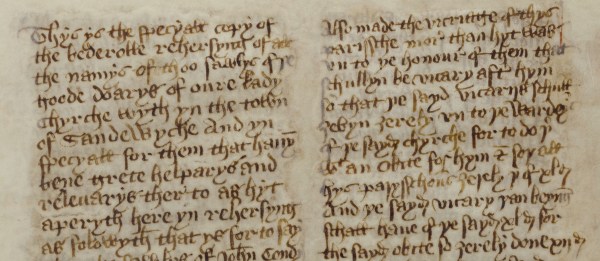 Thys ys the specyall copy of
the bederolle rehersyng of all
the namys of thoo sawlys of ye
goode doarys of oure lady
Chyrche wyth yn the town
of Sandewyche And yn
specyall for them that haue
bene grete helparys and
releuarys ther to as hyt
aperyth here yn rehersyng
as folowyth that ys for to say
of John Cond
Also made the vicriage of thys
parissche mor than hyt was
vn to ye honour of them that
schullyn be vicary aftr hym
so that ye sayd vicarijs schull
zerely vn to ye wardeys
of ye sayd chyrche for to do
an Obite for hym &
hys paryschons zerely
And ye sayd vicary
schall haue of ye sayd xl d for
the sayd obite so zerely done xij d